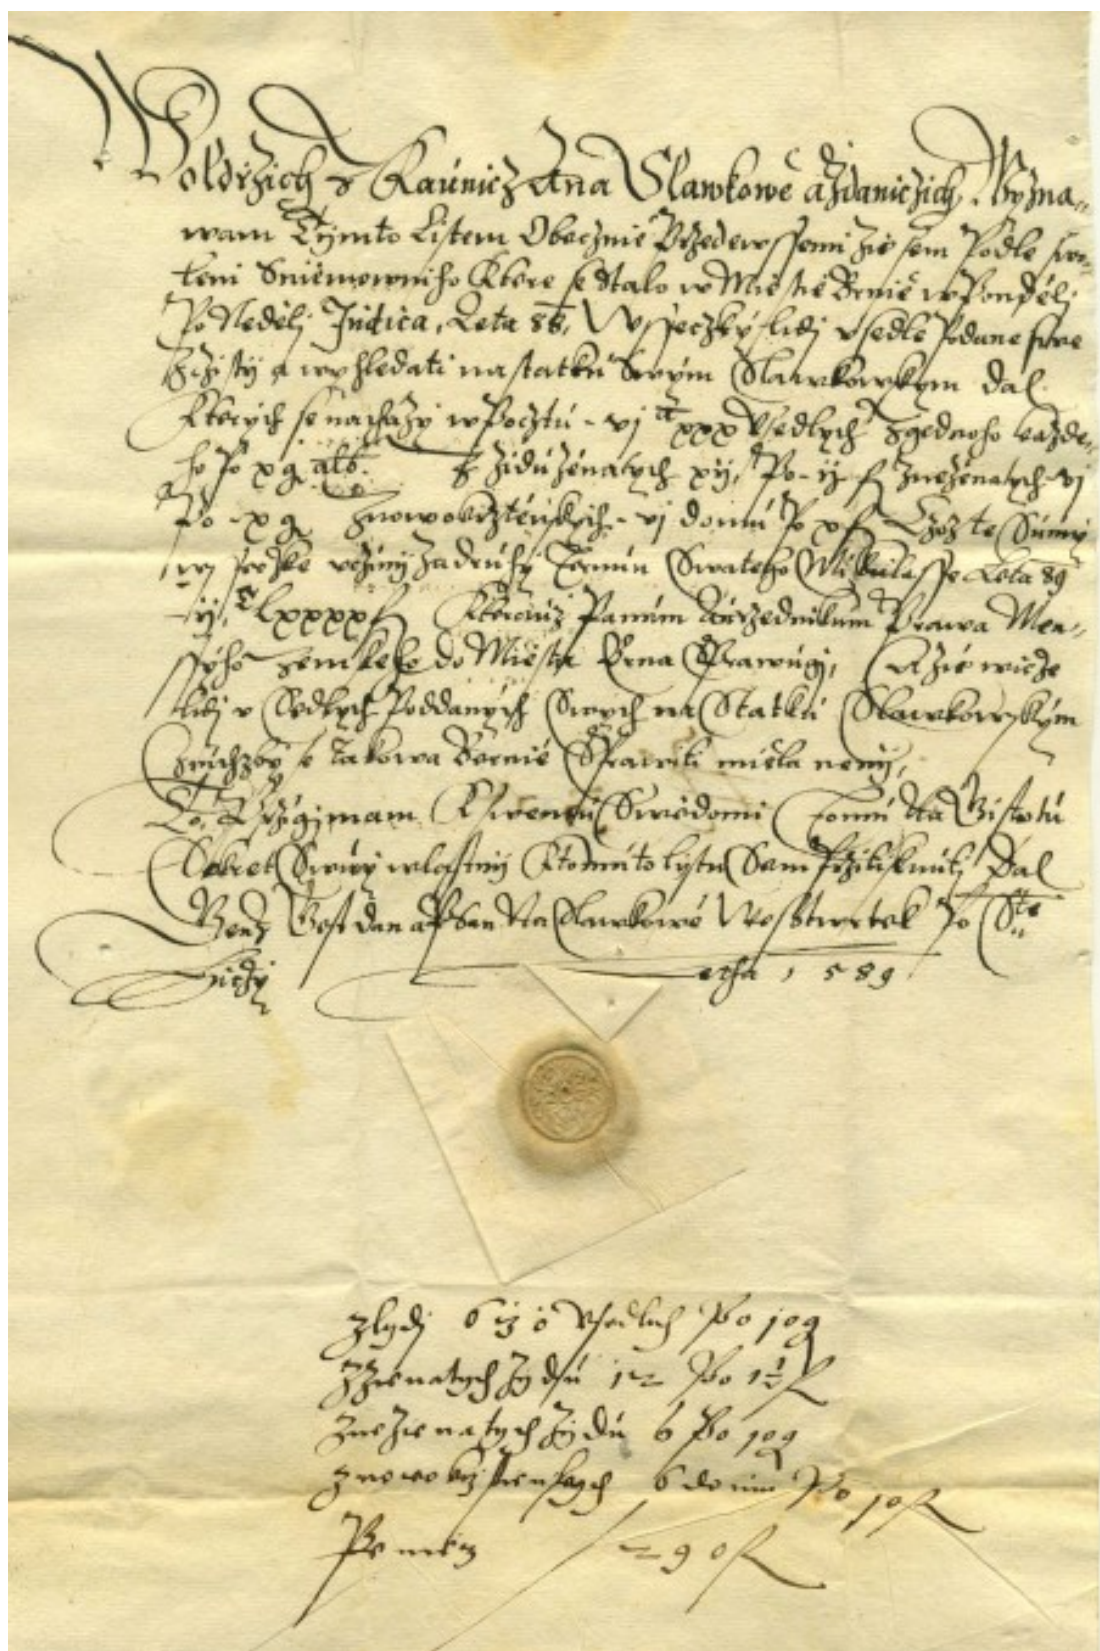 Woldrzich z Kaunicz a na Slawkowě a Zdaniczich, Wyzna„
wam Tymto Listem Obecznie Przedewssemi zie sem Podle swo„
leni Sniemowniho Ktere se Stalo w Miestě Brnie w Pondělj
Po Nedělj Judica, Leta 88, Wsseczky lidj usedle Podane swe
zčisty a wyhledati na statku Swým Slawkowskym dal
Kterych se nachazy w Pocztu - vj c xxx Usedlych z gednoho každe„
ho Po x g alb. z židů ženatych xij, Po - ij f z neženatych - vj
Po - x g z nowokrztěnskych - vj domu Po x f
za druhy Termin Swateho Mikulasse Leta 89
- ij, c lxxxx f Kterauž Panum Auržednikum Prawa Men„
ssyho zemskeho do Miesta Brna Sprawugi, A zie wicze
lidj usedlych Poddanych Swych na Statku Slawkowskym
z nichzby se takowa Bernie Sprawiti miela neny,
To Przigimam K Swemu Swědomi Tomu Na Gistotu
Sekret Swůg wlastny K tomuto lystu Sem Przitisknuti Dal
Genz Gest dan a Psan Na Slawkowě We Sstwrtek Po Ste
Luczy etha 1589
z lydj 630 Usedlich Po 10 g
z zenatych zydu 12 Po 1½ f
z nezienatych zydu 6 Po 10 g
z nowokrztienskych 6 domu Po 10 f
Peniez 290 f